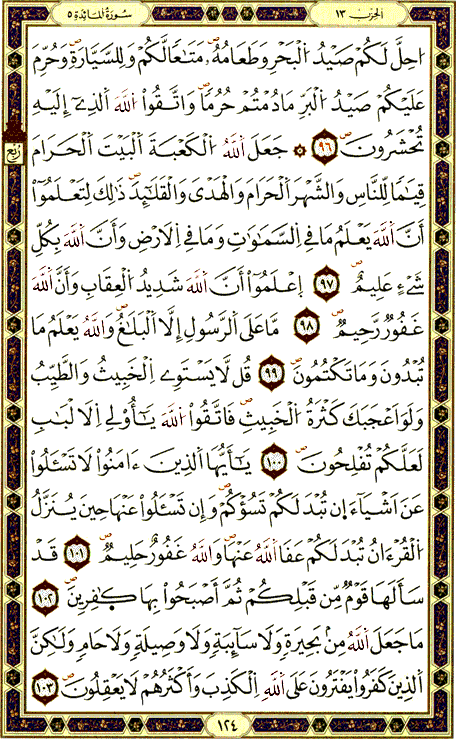 الحزب ١٣
سُورَةُ الْمَائِدَة ٥
اُحِلَّ لَكُمْ صَيْدُ اُلْبَحْرِ وَطَعَامُهُۥ مَتَٰعاٗ لَّكُمْ وَلِلسَّيَّارَةِۖ وَحُرِّمَ
عَلَيْكُمْ صَيْدُ اُلْبَرِّ مَا دُمْتُمْ حُرُماٗۖ وَاتَّقُواْ اُللَّهَ اَلذِےٓ إِلَيْهِ
تُحْشَرُونَۖ ٩٦ ۞ جَعَلَ اَللَّهُ اُلْكَعْبَةَ اَلْبَيْتَ اَلْحَرَامَ
رُبُع
قِيَٰماٗ لِّلنَّاسِ وَالشَّهْرَ اَلْحَرَامَ وَالْهَدْيَ وَالْقَلَٰٓئِدَۖ ذَٰلِكَ لِتَعْلَمُوٓاْ
أَنَّ اَللَّهَ يَعْلَمُ مَا فِے اِلسَّمَٰوَٰتِ وَمَا فِے اِلَارْضِ وَأَنَّ اَللَّهَ بِكُلِّ
شَےْءٍ عَلِيمٌۖ ٩٧ اِعْلَمُوٓاْ أَنَّ اَللَّهَ شَدِيدُ اُلْعِقَابِ وَأَنَّ اَللَّهَ
غَفُورٞ رَّحِيمٞۖ ٩٨ مَّا عَلَى اَلرَّسُولِ إِلَّا اَلْبَلَٰغُۖ وَاللَّهُ يَعْلَمُ مَا
تُبْدُونَ وَمَا تَكْتُمُونَۖ ٩٩ قُل لَّا يَسْتَوِے اِلْخَبِيثُ وَالطَّيِّبُ
وَلَوَ اَعْجَبَكَ كَثْرَةُ اُلْخَبِيثِۖ فَاتَّقُواْ اُللَّهَ يَٰٓأُوْلِے اِلَالْبَٰبِ
لَعَلَّكُمْ تُفْلِحُونَۖ ١٠٠ يَٰٓأَيُّهَا اَلذِينَ ءَامَنُواْ لَا تَسْـَٔلُواْ
عَنَ اَشْيَآءَ اِن تُبْدَ لَكُمْ تَسُؤْكُمْۖ وَإِن تَسْـَٔلُواْ عَنْهَا حِينَ يُنَزَّلُ
اُلْقُرْءَانُ تُبْدَ لَكُمْ عَفَا اَللَّهُ عَنْهَاۖ وَاللَّهُ غَفُورٌ حَلِيمٞۖ ١٠١ قَدْ
سَأَلَهَا قَوْمٞ مِّن قَبْلِكُمْ ثُمَّ أَصْبَحُواْ بِهَا كَٰفِرِينَۖ ١٠٢
مَا جَعَلَ اَللَّهُ مِنۢ بَحِيرَةٖ وَلَا سَآئِبَةٖ وَلَا وَصِيلَةٖ وَلَا حَامٖ وَلَٰكِنَّ
اَلذِينَ كَفَرُواْ يَفْتَرُونَ عَلَى اَللَّهِ اِلْكَذِبَۖ وَأَكْثَرُهُمْ لَا يَعْقِلُونَۖ ١٠٣
١٢٤